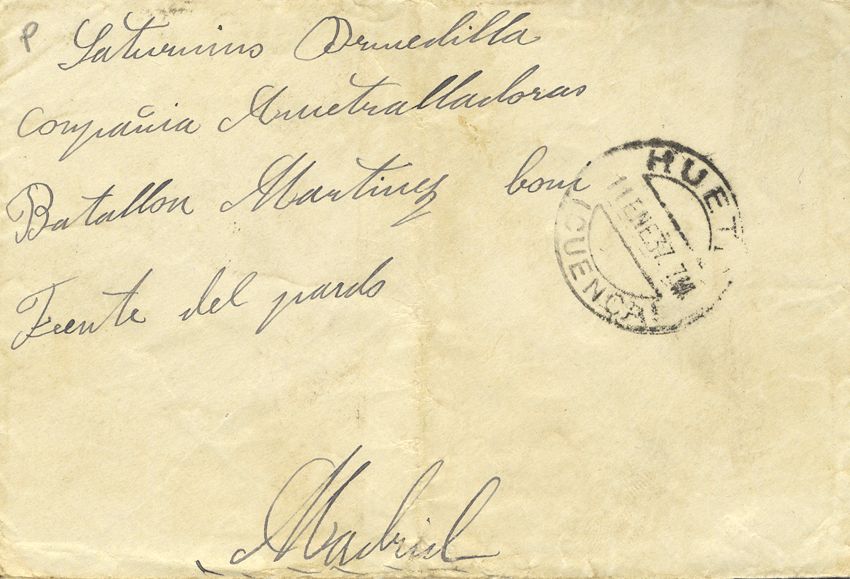 P
Saturnino Ormedilla
Compañia Ametralladoras
Batallon Martinez boni
Frente del pardo
Madrid
HUETE
11 ENE 37. 7M
(CUENCA)